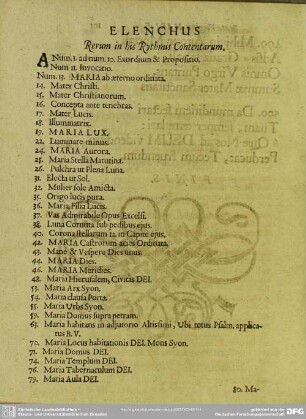 ELENCHUS
Rerum in his Rythmis Contentarum.
A Num. 1. ad num. 10. Exordium & Propositio.
Num 11. Invocatio.
Num. 13. MARIA ab æterno ordinata.
14. Mater Christi.
15. Mater Christianorum.
16. Concepta ante tenebras.
17. Mater Lucis.
18. Illuminatrix.
19. MARIA LUX.
22. Luminare minus.
24. MARIA Aurora.
25. Maria Stella Matutina.
26. Pulchra ut Plena Luna.
31. Electa ut Sol.
32. Mulier sole Amicta.
35. Origo lucis pura.
36. Maria Filia Lucis.
37. Vas Admirabile Opus Excelsi.
38. Luna Cornuta sub pedibus ejus.
40. Corona stellarum 12. in Capite ejus.
42. MARIA Castrorum acies Ordinata.
43. Mane & Vespere Dies unus.
44. MARIA Dies.
46. MARIA Meridies.
48. Maria Hierusalem, Civitas DEI.
53. Maria Arx Syon.
54. Maria clausa Porta.
55. Maria Urbs Syon.
59. Maria Domus supra petram.
61. Maria habitans in adjutorio Altissimi, Ubi totus Psalm, applica-
tus B. V.
70. Maria Locus habitationis DEI. Mons Syon.
71. Maria Domus DEI.
74. Maria Templum DEI.
76. Maria Tabernaculum DEI.
77. Maria Aula DEI
80. Ma-